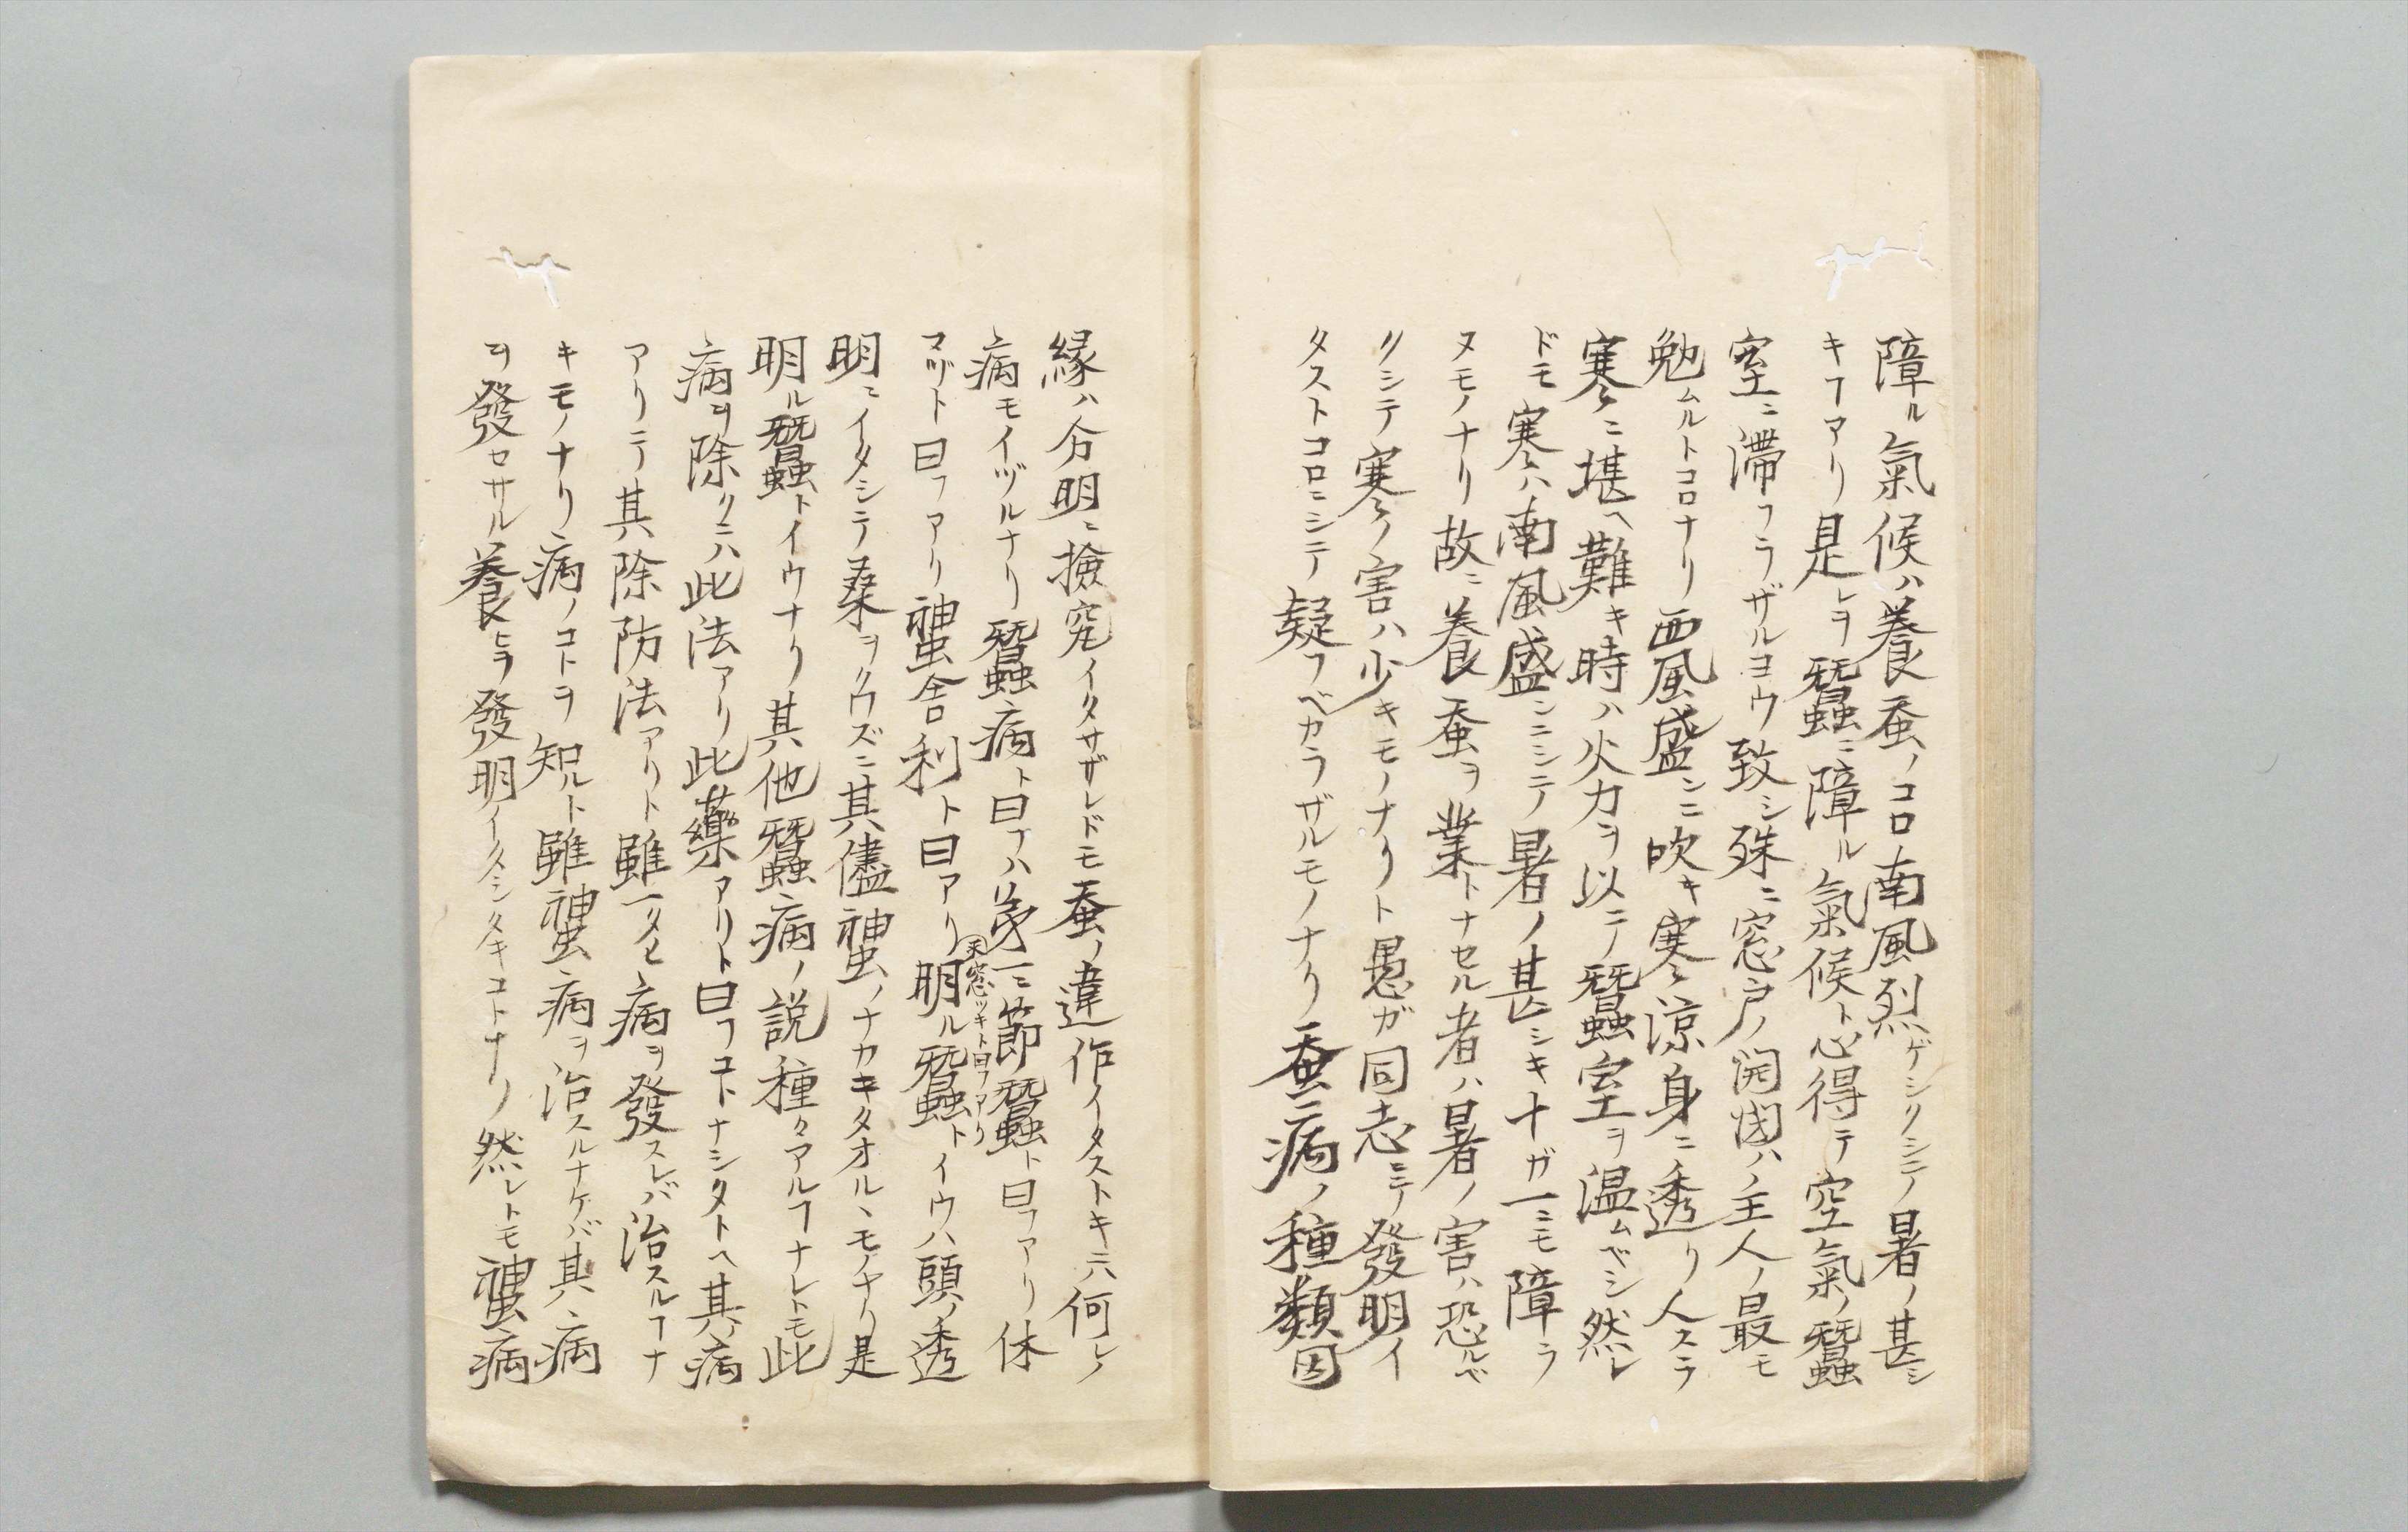 障ル氣候ハ養蚕ノコロ南風烈ゲシクシテ暑ノ甚シ
キヿアリ是レヲ蠶ニ障ル氣候ト心得テ空氣ノ蠶
室ニ滞フラザルヨウ致シ殊ニ窓戸ノ開閉ハ主人ノ最モ
勉ムルトコロナリ西風盛ンニ吹キ寒涼身ニ透リ人スラ
寒ニ堪ヘ難キ時ハ火力ヲ以テ蠶室ヲ温ムベシ然レ
ドモ寒ハ南風盛ンニシテ暑ノ甚シキ十ガ一ニモ障ラ
ヌモノナリ故ニ養蚕ヲ業トナセル者ハ暑ノ害ハ恐ルベ
クシテ寒ノ害ハ少キモノナリト愚ガ同志ニテ發明イ
タストコロニシテ疑フベカラザルモノナリ蚕病ノ種類因
縁ハ分明ニ撿究イタサザレドモ蚕ノ違作イタストキハ何レノ
病モイヅルナリ蠶病ト曰フハ第一ニ節蠶ト曰フアリ休
マズト曰フアリ神蚕舎利ト曰アリ明ル蠶トイウハ頭ノ透
天窓ツキト曰フアリ
明ニイタシテ桑ヲクウズニ其儘神蚕ノナカキタオルヽモノナリ是
明ル蠶トイウナリ其他蠶病ノ説種々アルヿナレトモ此
病ヲ除クニハ此法アリ此藥アリト曰フコトナシタトヘ其病
アリテ其除防法アリト雖一タヒ病ヲ發スレバ治スルヿナ
キモノナリ病ノコトヲ知ルト雖神蚕病ヲ治スルナケバ其病
ヲ發セサル養ヒヲ發明イタシタキコトナリ然レトモ神蚕病